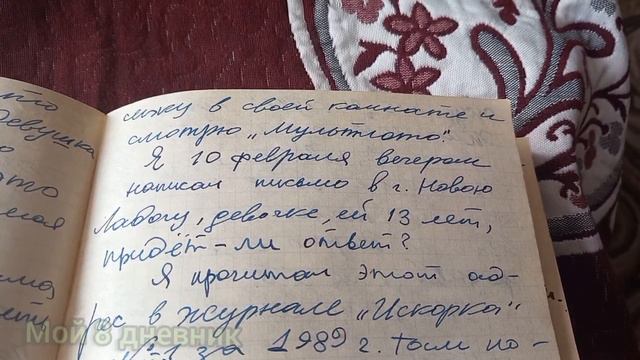 это
девушка
о
это
лежу в своей комнате и
смотрю „Мультлото".
Я 10 февраля вечером
написал письмо в г. Новою
Лабогу, девочке, ей 13 лет,
придёт-ли ответ?
Я прочитал этот ад-
рес в журнале „Искорка"
№1 за 1989 г. Там по-
Мой 8 дневник